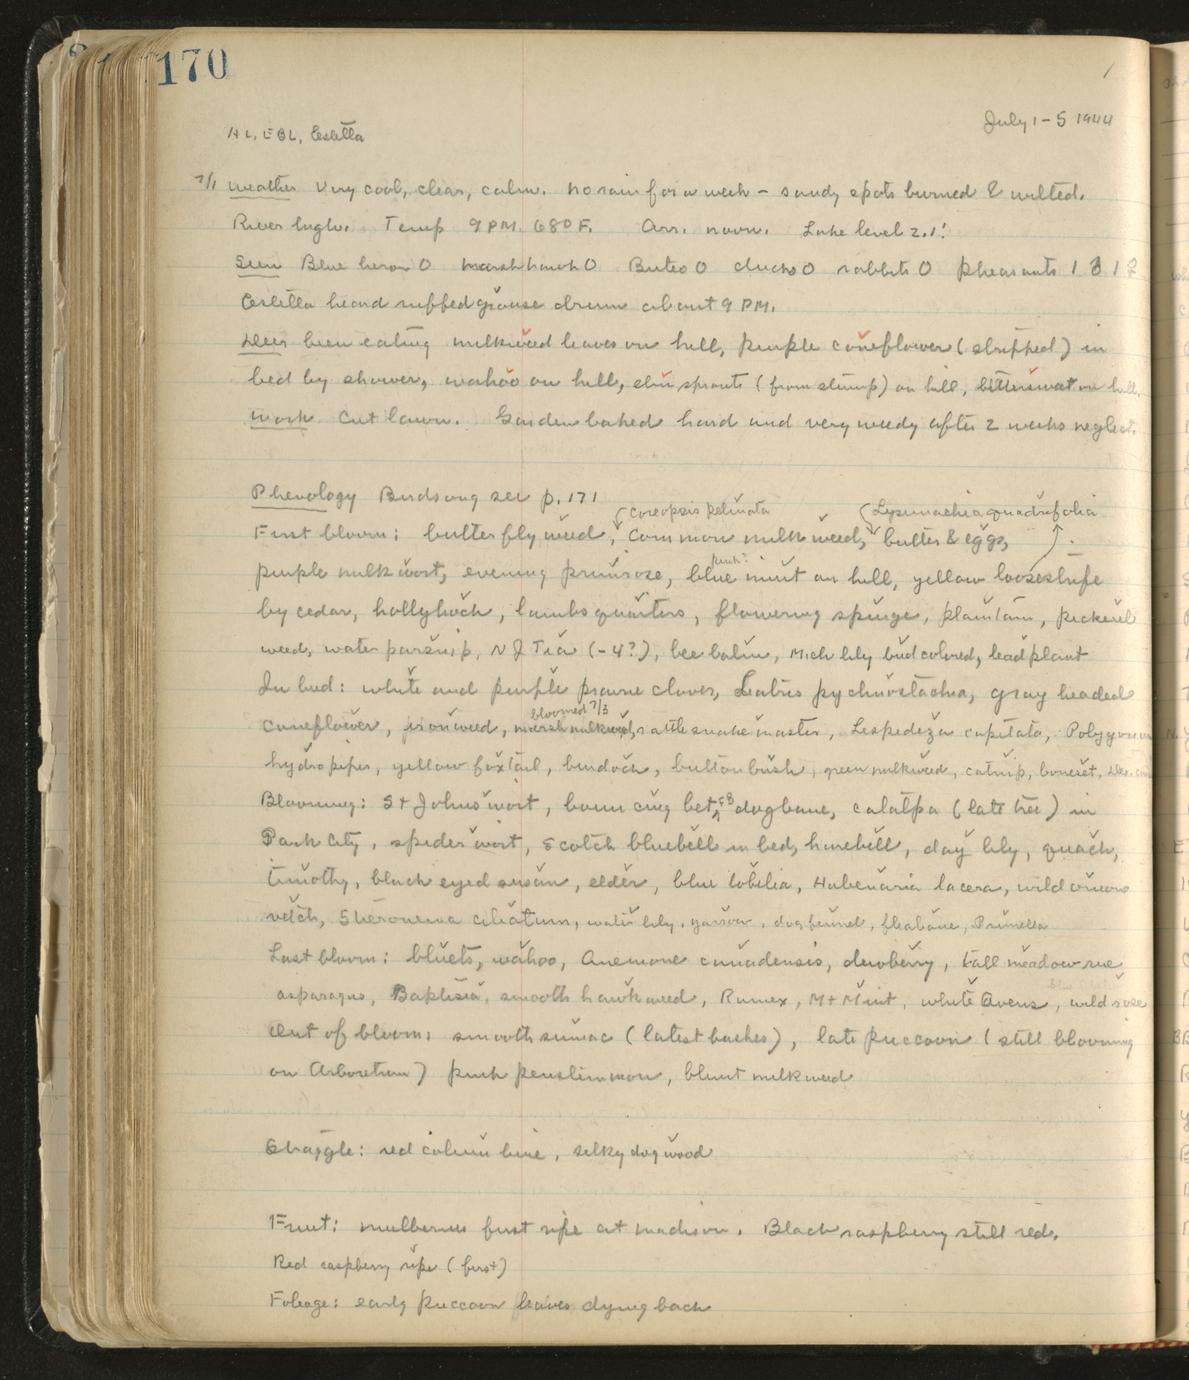 170
July 1-5 1944
AL, EBL, Estella
7/1 Weather Very cool, clear, calm. No rain for a week - sandy spots burned & wilted.
River high. Temp 9 PM 68° F. Arr. noon. Lake level 2.1'
Seen Blue heron 0 marsh hawk 0 Buteo 0 ducks 0 rabbits 0 pheasants 1 ♂ 1 ♀
Estella heard ruffed grouse drum about 9 PM.
Deer been eating milkweed leaves on hill, purple coneflower (stripped) in
bed by shower, wahoo on hill, elm sprouts (from stump) on hill, bittersweet on hill.
Work Cut lawn. Garden baked hard and very weedy after 2 weeks neglect.
Phenology Birdsong see p. 171
Coreopsis palmata Lysimachia quadrifolia
First bloom: butterfly weed, common milkweed, butter & eggs,
pink?
purple milkwort, evening primrose, blue mint on hill, yellow loosestrife
by cedar, hollyhock, lambs quarters, flowering spurge, plantain, pickerel
weed, water parsnip, N J Tea (-4?), bee balm, Mich lily bud colored, lead plant
In bud: white and purple prairie clover, Liatris pychnostachia, gray headed
bloomed 7/3
coneflower, ironweed, marsh milkweed, rattlesnake master, Lespedeza capitata, Polygonum
hydropiper, yellow foxtail, burdock, buttonbush, green milkweed, catnip, boneset,
Blooming: St Johnswort, bouncing bet, dogbane, catalpa (late tree) in
Park City, spiderwort, Scotch bluebell in bed, harebell, day lily, quack,
timothy, black eyed susan, elder, blue lobelia, Habenaria lacera, wild onion
vetch, Steironema ciliatum, water lily, yarrow, dog fennel, fleabane, Prunella
Last bloom: bluets, wahoo, Anemone canadensis, dewberry, tall meadow rue
asparagus, Baptisia, smooth hawkweed, Rumex, Mt Mint, white Avens, wild rose
Out of bloom: smooth sumac (latest bushes), late puccoon (still blooming
on Arboretum) pink penstemmon, blunt milkweed
Straggle: red columbine, silky dogwood
Fruit: mulberries first ripe at Madison. Black raspberry still red.
Red raspberry ripe (first)
Foliage: early puccoon leaves dying back